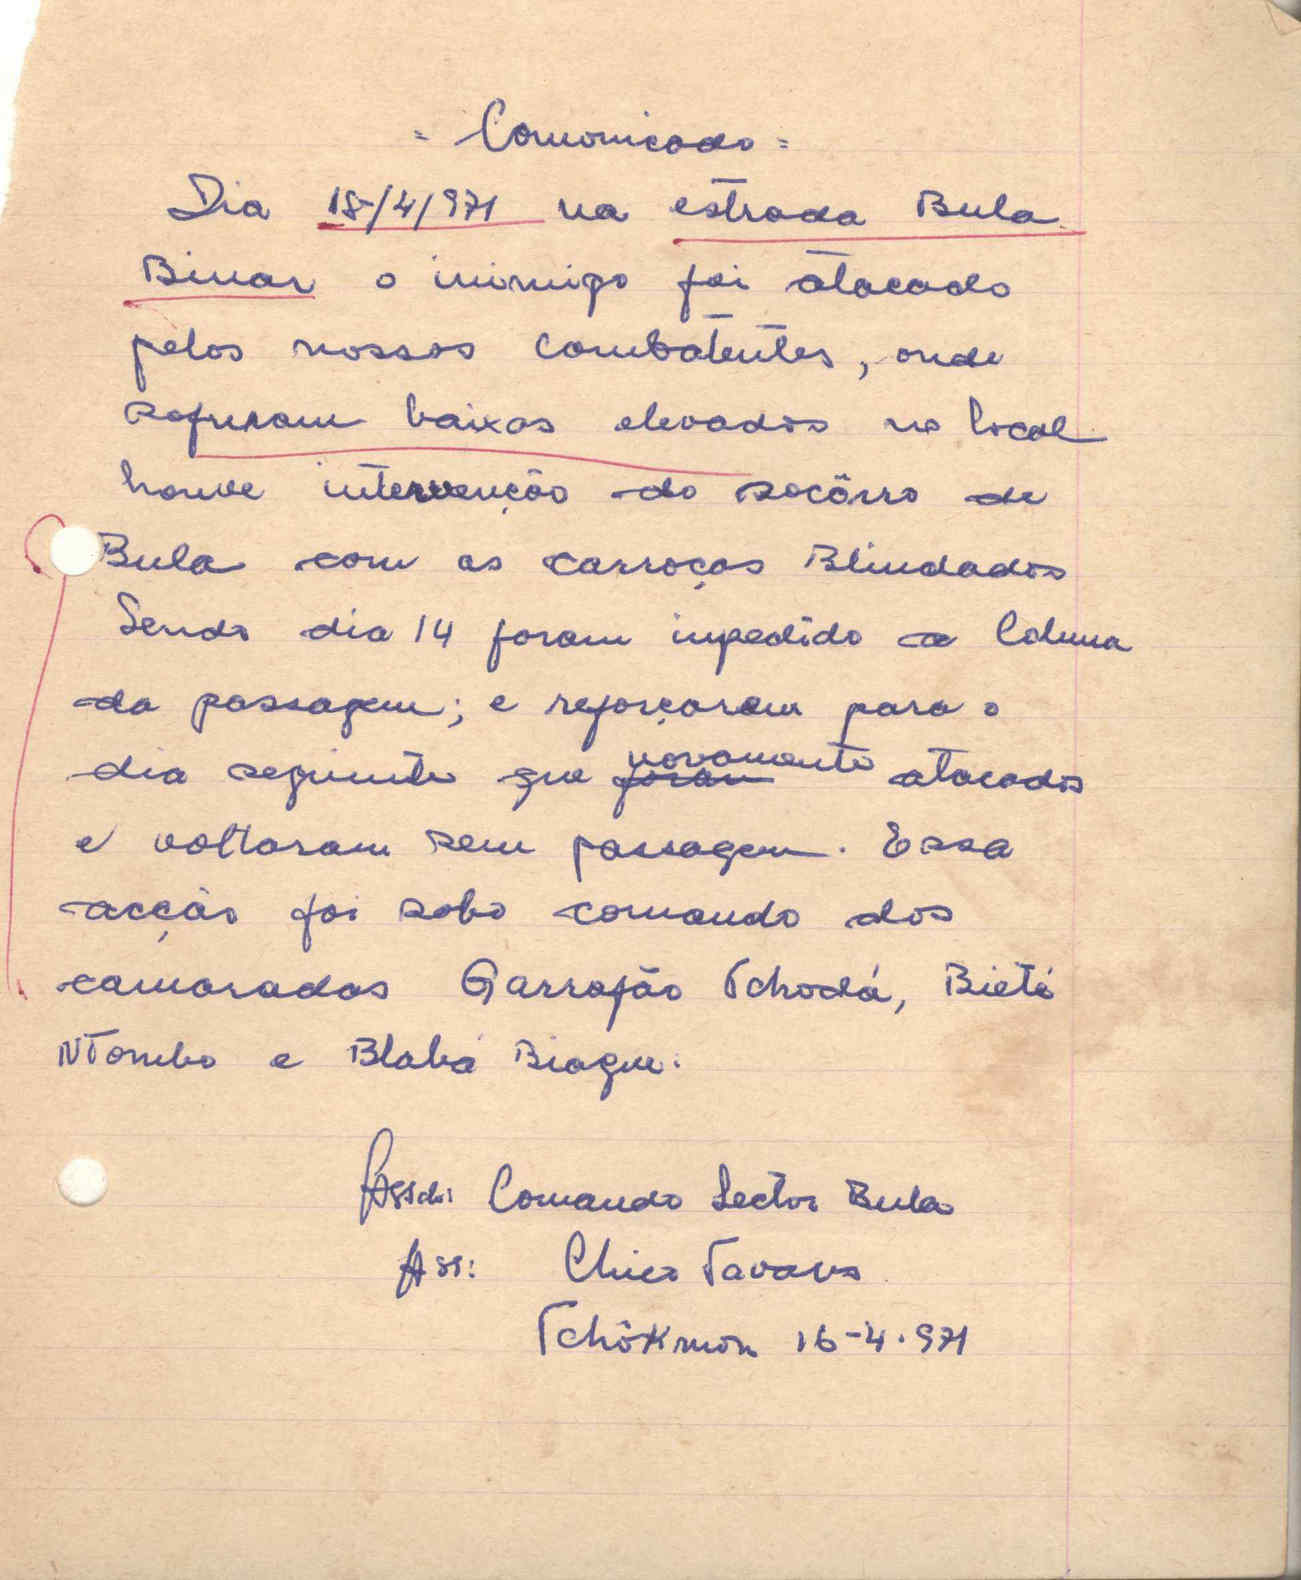 = Comonicado =
Dia 15/4/971 na estrada Bula
Binar o inimigo foi atacado
pelos nossos combatentes, onde
sofreram baixas elevados no local
houve intervenção do socôrro de
Bula com as carroças Blindados
Sendo dia 14 foram impedido a Coluna
da passagem; e reforçaram para o
dia seguinte que foram novamente atacados
e voltaram sem passagem. Essa
acção foi sobo comando dos
camaradas Garrafão Tchodá, Bieté
NTombo e Blabá Biague.
Comando Sector Bula
Ass: Chico Tavares
Tchôkmon 16-4.971